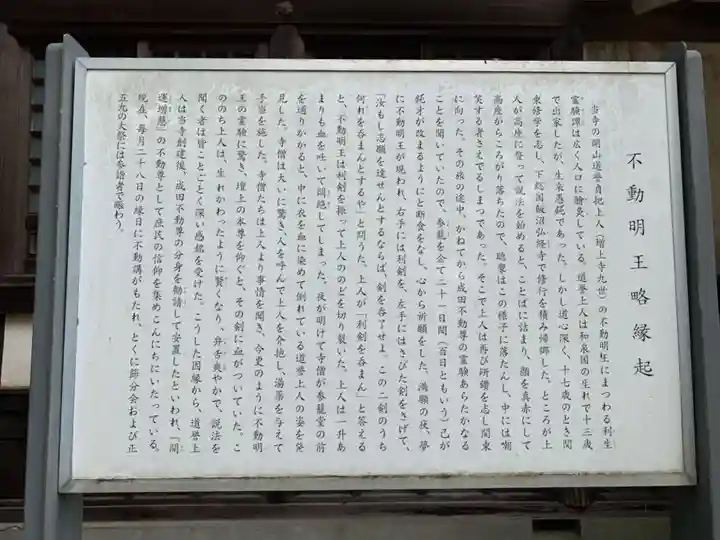 不動明王略縁起
当寺の開山道誉貞把上人(増上寺九世)の不動明王にまつわる利生
霊験譚は広く人口に膾炙している。道誉上人は和泉国の生れで十三歳
で出家したが、生来愚鈍であった。しかし道心深く、十七歳のとき関
東修学を志し、下総国飯沼弘経寺で修行を積み帰郷した。ところが上
人が高座に登って説法を始めると、ことばに詰まり、顔を真赤にして
高座からころがり落ちたので、聴衆はこの様子に落たんし、中には嘲
笑する者さえでるしまつであった。そこで上人は再び研鑚を志し関東
に向った。その旅の途中、かねてから成田不動尊の霊験あらたかなる
ことを聞いていたので、参籠を企て二十一日間(百日ともいう)己が
鈍才が改まるようにと断食をなし、心から祈願をした。満願の夜、夢
に不動明王が現われ、右手には利剣を、左手にはさびた剣をさげて、
「汝もし志願を達せんとするならば、剣を呑了せよ。この二剣のうち
何れを呑まんとするや」と問うた。上人が「利剣を呑まん」と答える
と、不動明王は利剣を振って上人ののどを切り裂いた。上人は一升あ
まりも血を吐いて悶絶してしまった。夜が明けて寺僧が参籠堂の前
を通りかかると、中に衣を血に染めて倒れている道誉上人の姿を発
見した。寺僧は大いに驚き人を呼んで上人を介抱し、湯薬を与えて
手当を施した。寺僧たちは上人より事情を聞き、今更のように不動明
王の霊験に驚き、壇上の本尊を仰ぐと、その剣に血がついていた。こ
ののち上人は、生れかわったように賢くなり、弁舌爽やかで、説法を
聞く者は皆ことごとく深い感銘を受けた。こうした因縁から、道誉上
人は当寺創建後、成田不動尊の分身を勧請して安置したといわれ、「開
運増慧」の不動尊として庶民の信仰を集めこんにちにいたっている。
現在、毎月二十八日の縁日に不動講がもたれ、とくに節分会および正
五九の大祭には参詣者で賑わう。